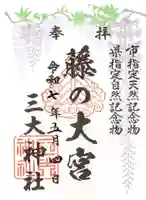 奉拝
市指定天然記念物
県指定自然記念物
藤の大宮
令和七年五月四日
三大神社